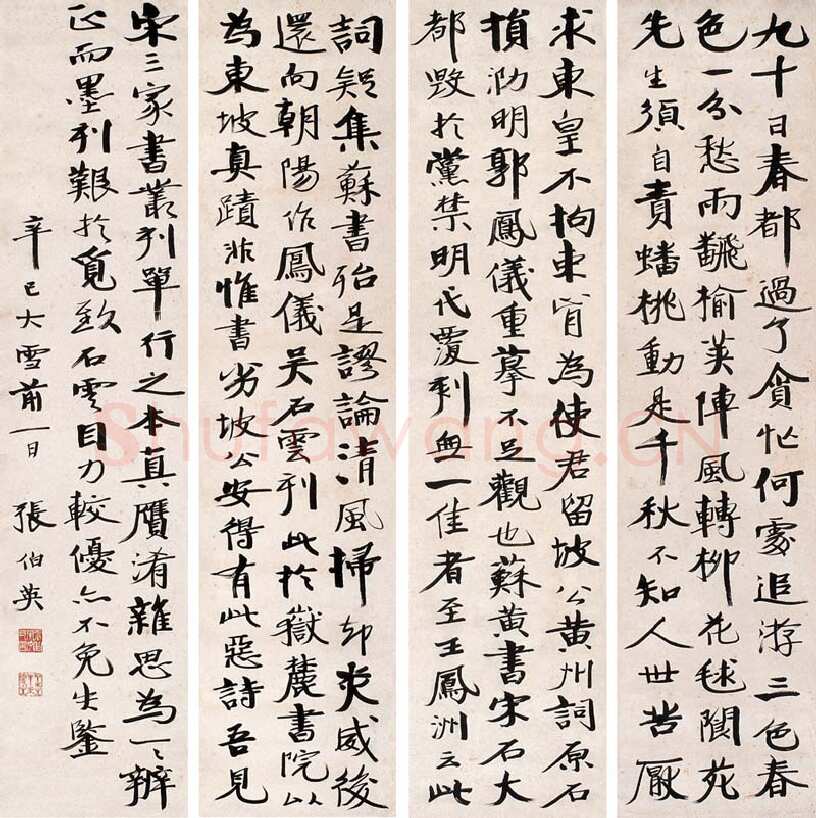 九十日春都過了貪忙何處追游三色春
色一分愁雨飜榆莢陣風轉柳花毬閬苑
先生須自責蟠桃動是千秋不知人世苦厭
求東皇不拘束肯為使君留坡公黃州詞原石
損泐明郭鳳儀重摹不足觀也蘇黃書宋石大
都毀於黨禁明代覆刻無一佳者至王鳳洲云此
詞疑集蘇書殆是謬論清風掃却炎威後
還向朝陽作鳳儀吳石雲刋此於嶽麓書院以
為東坡真蹟非惟書劣坡公安得有此惡詩吾見
宋三家書叢刋單行之本真贋淆雜思為一〻辨
正而墨刋艱於覓致石雲目力較優亦不免失鑒
辛巳大雪前一日 張伯英
Shufawang.CN